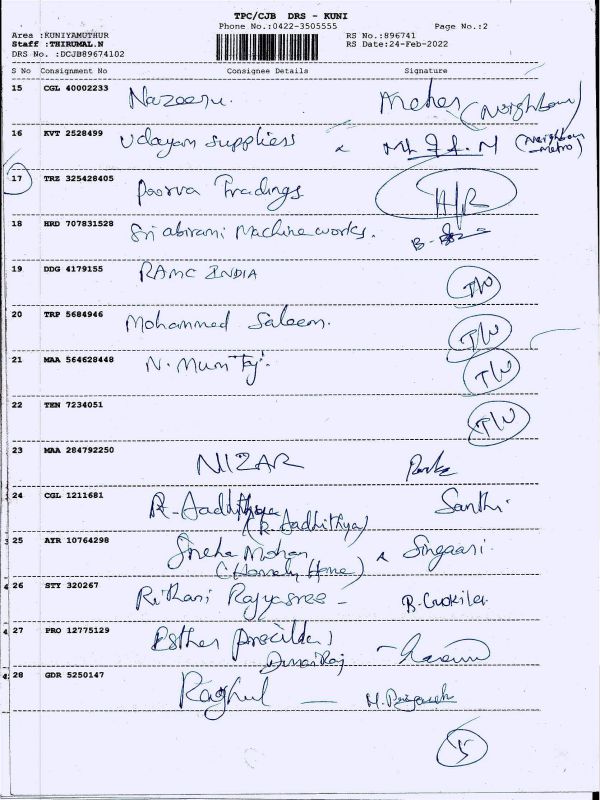 TPC/CJB DRS - KUNI
Phone No.:0422-3505555 Page No.:2
Area :KUNIYAMUTHUR RS No.:896741
Staff :THIRUMAL.N RS Date:24-Feb-2022
DRS No. :DCJB89674102
S No Consignment No Consignee Details Signature
15 CGL 40002233 Nazeeru. Meher (Neighbour)
16 KVT 2528499 Udayam Suppliers (Neighbour Metro)
17 TRZ 325428405 Poorva Tradings
18 HRD 707831528 Sri abirami Machine works.
19 DDG 4179155 RAMC INDIA
20 TRP 5684946 Mohammed Saleem.
21 MAA 564628448 N. Mumtaj.
22 TEN 7234051
23 MAA 284792250 NIZAR
24 CGL 1211681 R-Aadhithya Santhi.
(R. Aadhithya)
25 AYR 10764298 Sneha Mohan & Singaari.
(Homely Home)
26 STY 320267 Rithani Rajyasree - B. Gokila
27 PRO 12775129 Esther
28 GDR 5250147 Raghul —